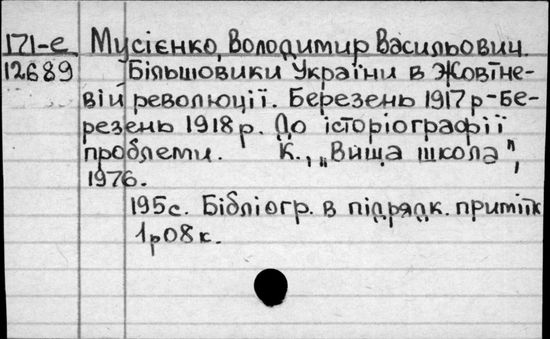 171-е Мусієнко, Володимир Васильович.
12689 Більшовики України в Жовтне-
вій революції. Березень 1917р-Бе-
резень 1918р. До історіографії
проблеми. К., „Вища школа",
1976.
195с. Бібліогр. в підрядк. приміік
1р08к.